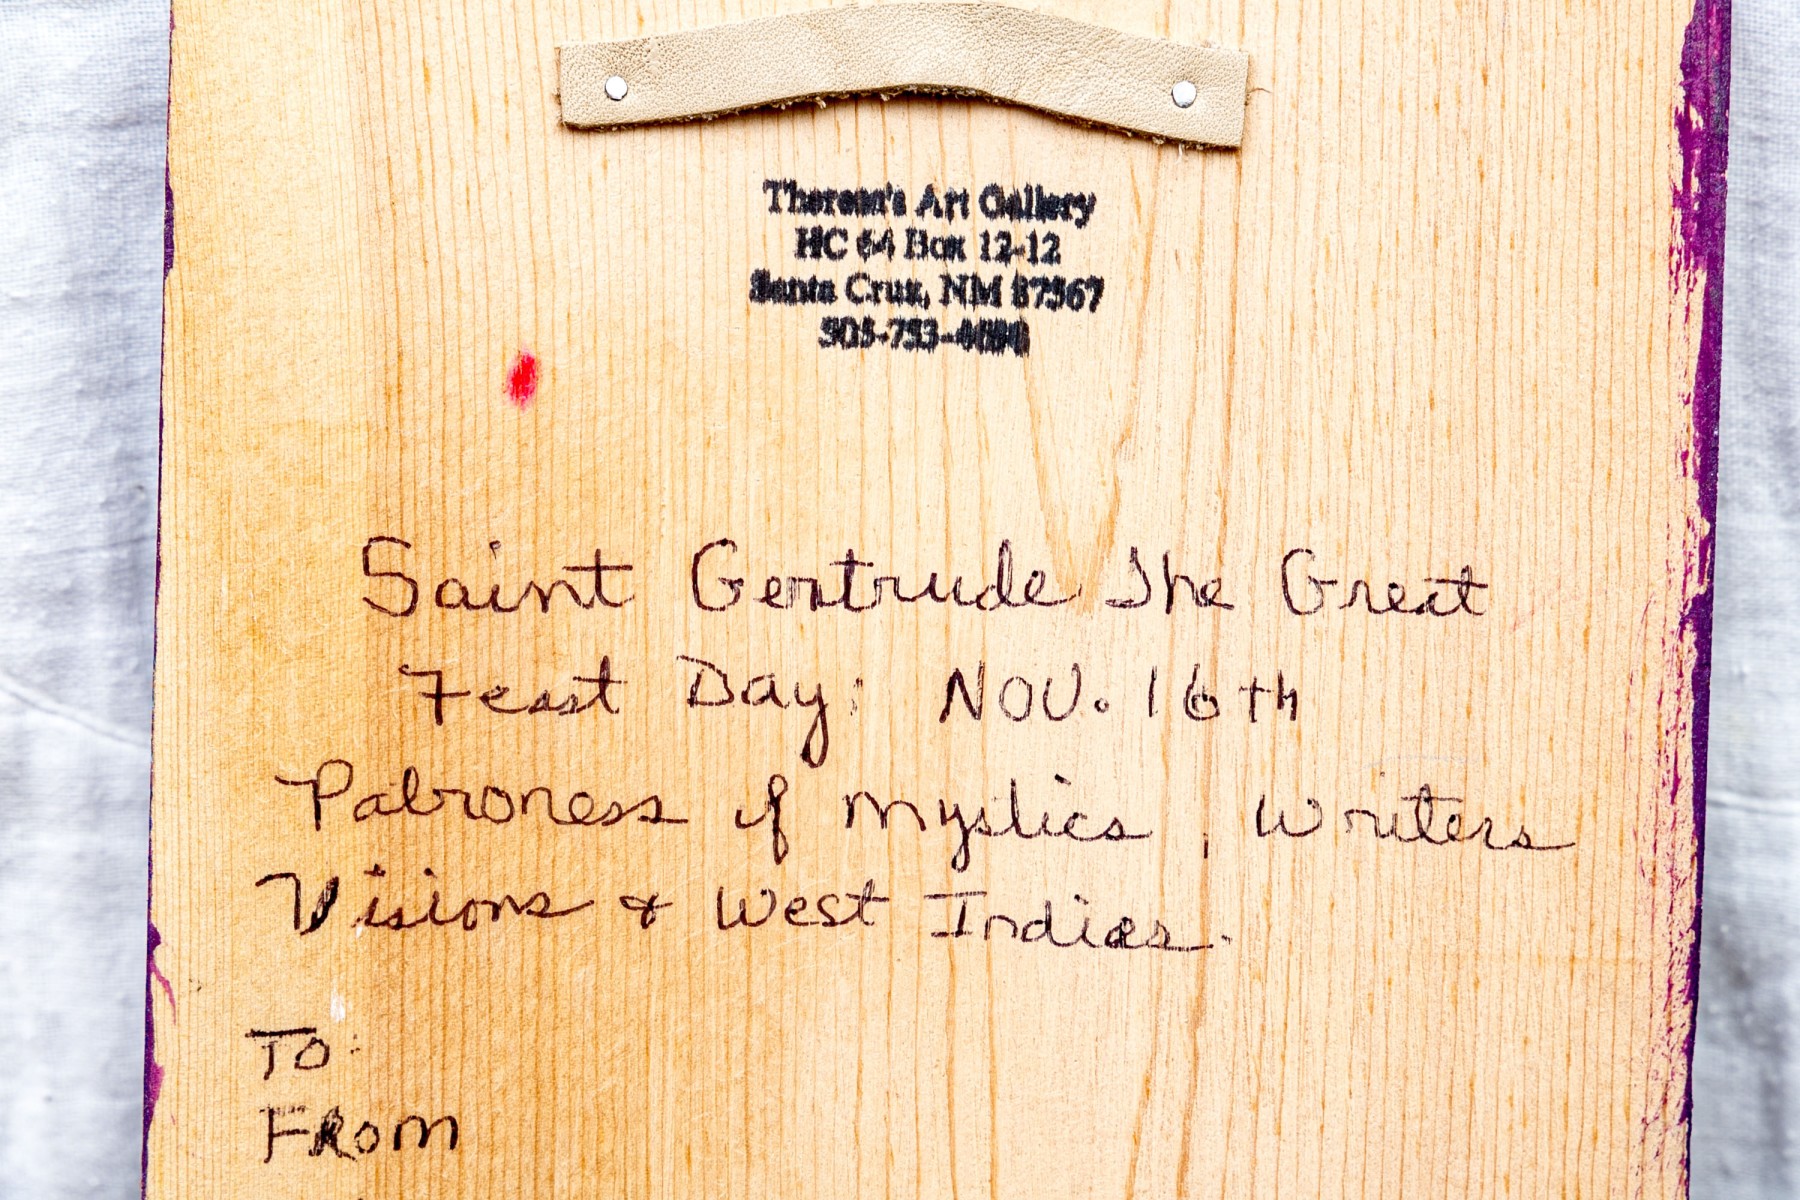 Theresa's Art Gallery
HC 64 Box 12-12
Santa Cruz, NM 87567
Saint Gertrude The Great
Feast Day: NOV. 16th
Patroness of Mystics, Writers
Visions & West Indies.
To:
FROm